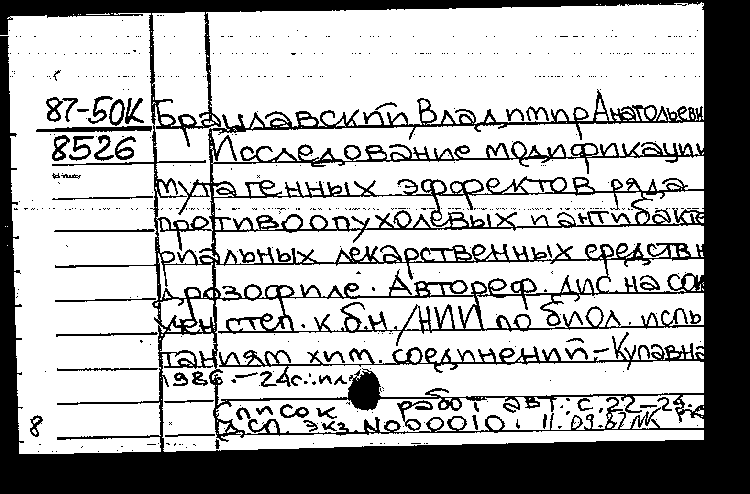 87-50К Брацлавский, Владимир Анатольеви
8526 Исследование модификаци
мутагенных эффектов ряда
противоопухолевых и антибакте
риальных лекарственных средств н
дрозофиле. Автореф. дис. на сои
учен степ. к.б.н. /НИИ по биол. испы
таниям хим. соединений.-Купавна
1986.-24с.:ил
Список работ авт.: с.22-24.
8 Дсп. экз. №00010. 11.09.87